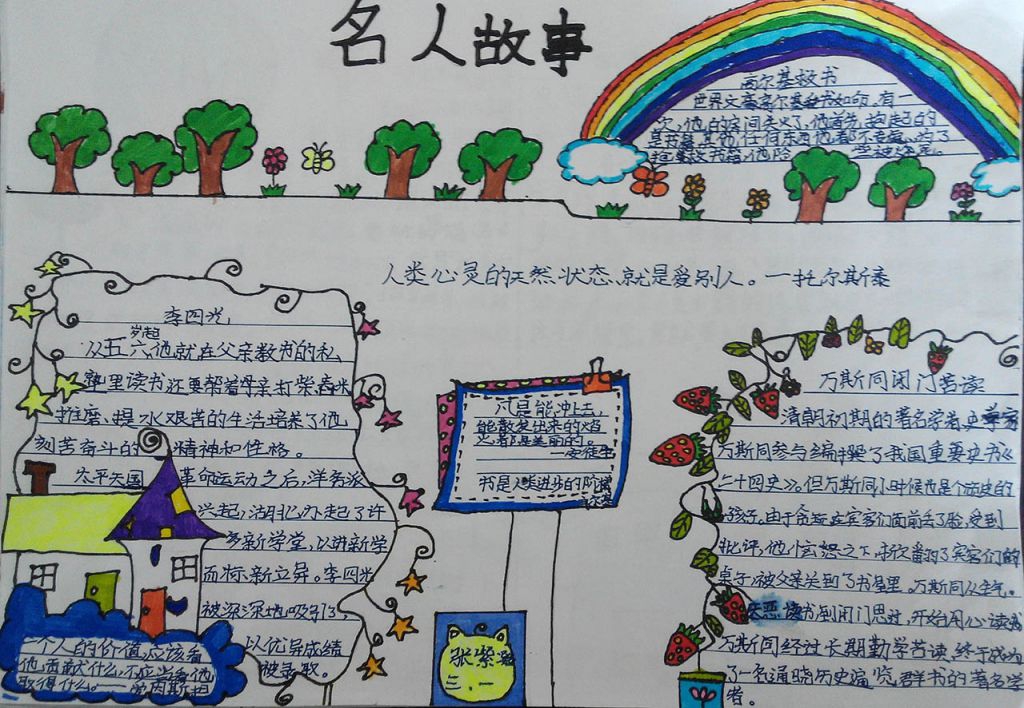 名人故事
高尔基救书
世界文豪高尔基爱书如命,有一
次,他的房间失火了,他首先抱起的
是书籍,其他任何东西他都不考虑。为了
抢救这书籍,他险
人类心灵的天然状态,就是爱别人。—托尔斯泰
李四光
从五六岁起他就在父亲教书的私
塾里读书还要帮着母亲打柴舂米
推磨、提水艰苦的生活培养了他
刻苦奋斗的精神和性格。
太平天国革命运动之后,洋务派
兴起,湖北办起了许
多新学堂,以讲新学
而标新立异。李四光
被深深地吸引了,
以优异成绩
被录取。
一个人的价值,应该看
他贡献什么,不应当看他
取得什么。——爱因斯坦
凡是能冲上去,
能散发出来的焰
火都是美丽的。
—安徒生
书是人类进步的阶梯
张紫
三.一
万斯同闭门苦读
清朝初期的著名学者,史学家
万斯同参与编撰了我国重要史书《
二十四史》。但万斯同小时候也是个顽皮的
孩子。由于贪玩,在宾客们面前丢了脸,受到
批评,他恼怒之下,掀翻了宾客们的
桌子,被父亲关到了书屋里。万斯同从生气、
厌恶读书到闭门思过,开始用心读书
万斯同经过长期勤学苦读,终于成为
了一名通晓历史遍览群书的著名学
者。